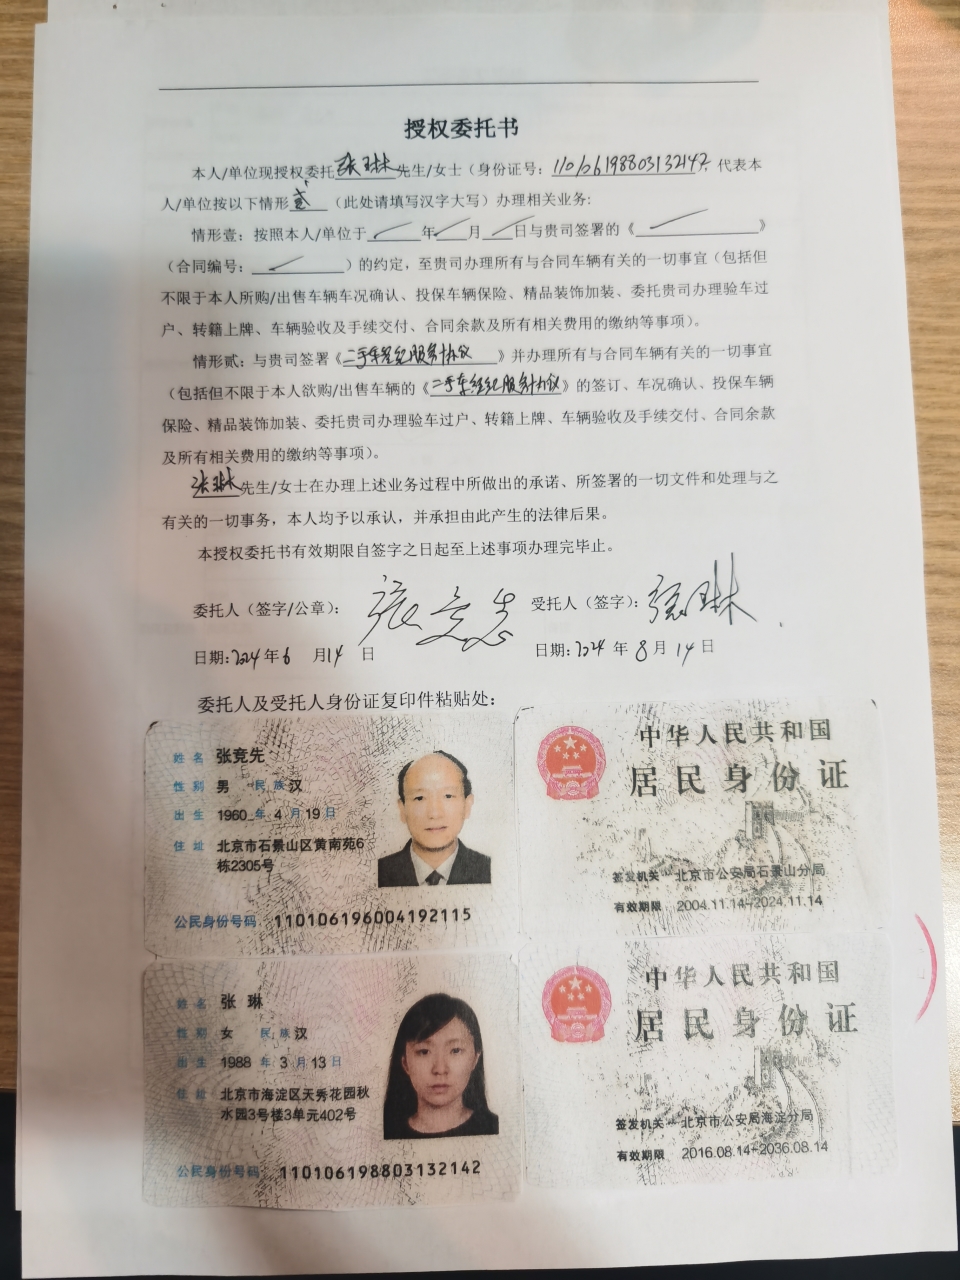 授权委托书
本人/单位现授权委托张琳先生/女士（身份证号：110106198803132142，代表本
人/单位按以下情形贰（此处请填写汉字大写）办理相关业务:
情形壹：按照本人/单位于 年 月 日与贵司签署的《 》
（合同编号： ）的约定，至贵司办理所有与合同车辆有关的一切事宜（包括但
不限于本人所购/出售车辆车况确认、投保车辆保险、精品装饰加装、委托贵司办理验车过
户、转籍上牌、车辆验收及手续交付、合同余款及所有相关费用的缴纳等事项）。
情形贰：与贵司签署《二手车经纪服务协议》并办理所有与合同车辆有关的一切事宜
（包括但不限于本人欲购/出售车辆的《二手车经纪服务协议》的签订、车况确认、投保车辆
保险、精品装饰加装、委托贵司办理验车过户、转籍上牌、车辆验收及手续交付、合同余款
及所有相关费用的缴纳等事项）。
张琳先生/女士在办理上述业务过程中所做出的承诺、所签署的一切文件和处理与之
有关的一切事务，本人均予以承认，并承担由此产生的法律后果。
本授权委托书有效期限自签字之日起至上述事项办理完毕止。
委托人（签字/公章）： 张竞先 受托人（签字）：张琳
日期:2024年6月14日 日期:2024年8月14日
委托人及受托人身份证复印件粘贴处：
姓名 张竞先
性别 男 民族 汉
出生 1960年4月19日
住址 北京市石景山区黄南苑6
栋2305号
公民身份号码 110106196004192115
中华人民共和国
居民身份证
签发机关 北京市公安局石景山分局
有效期限 2004.11.14-2024.11.14
姓名 张琳
性别 女 民族 汉
出生 1988年3月13日
住址 北京市海淀区天秀花园秋
水园3号楼3单元402号
公民身份号码 110106198803132142
中华人民共和国
居民身份证
签发机关 北京市公安局海淀分局
有效期限 2016.08.14-2036.08.14